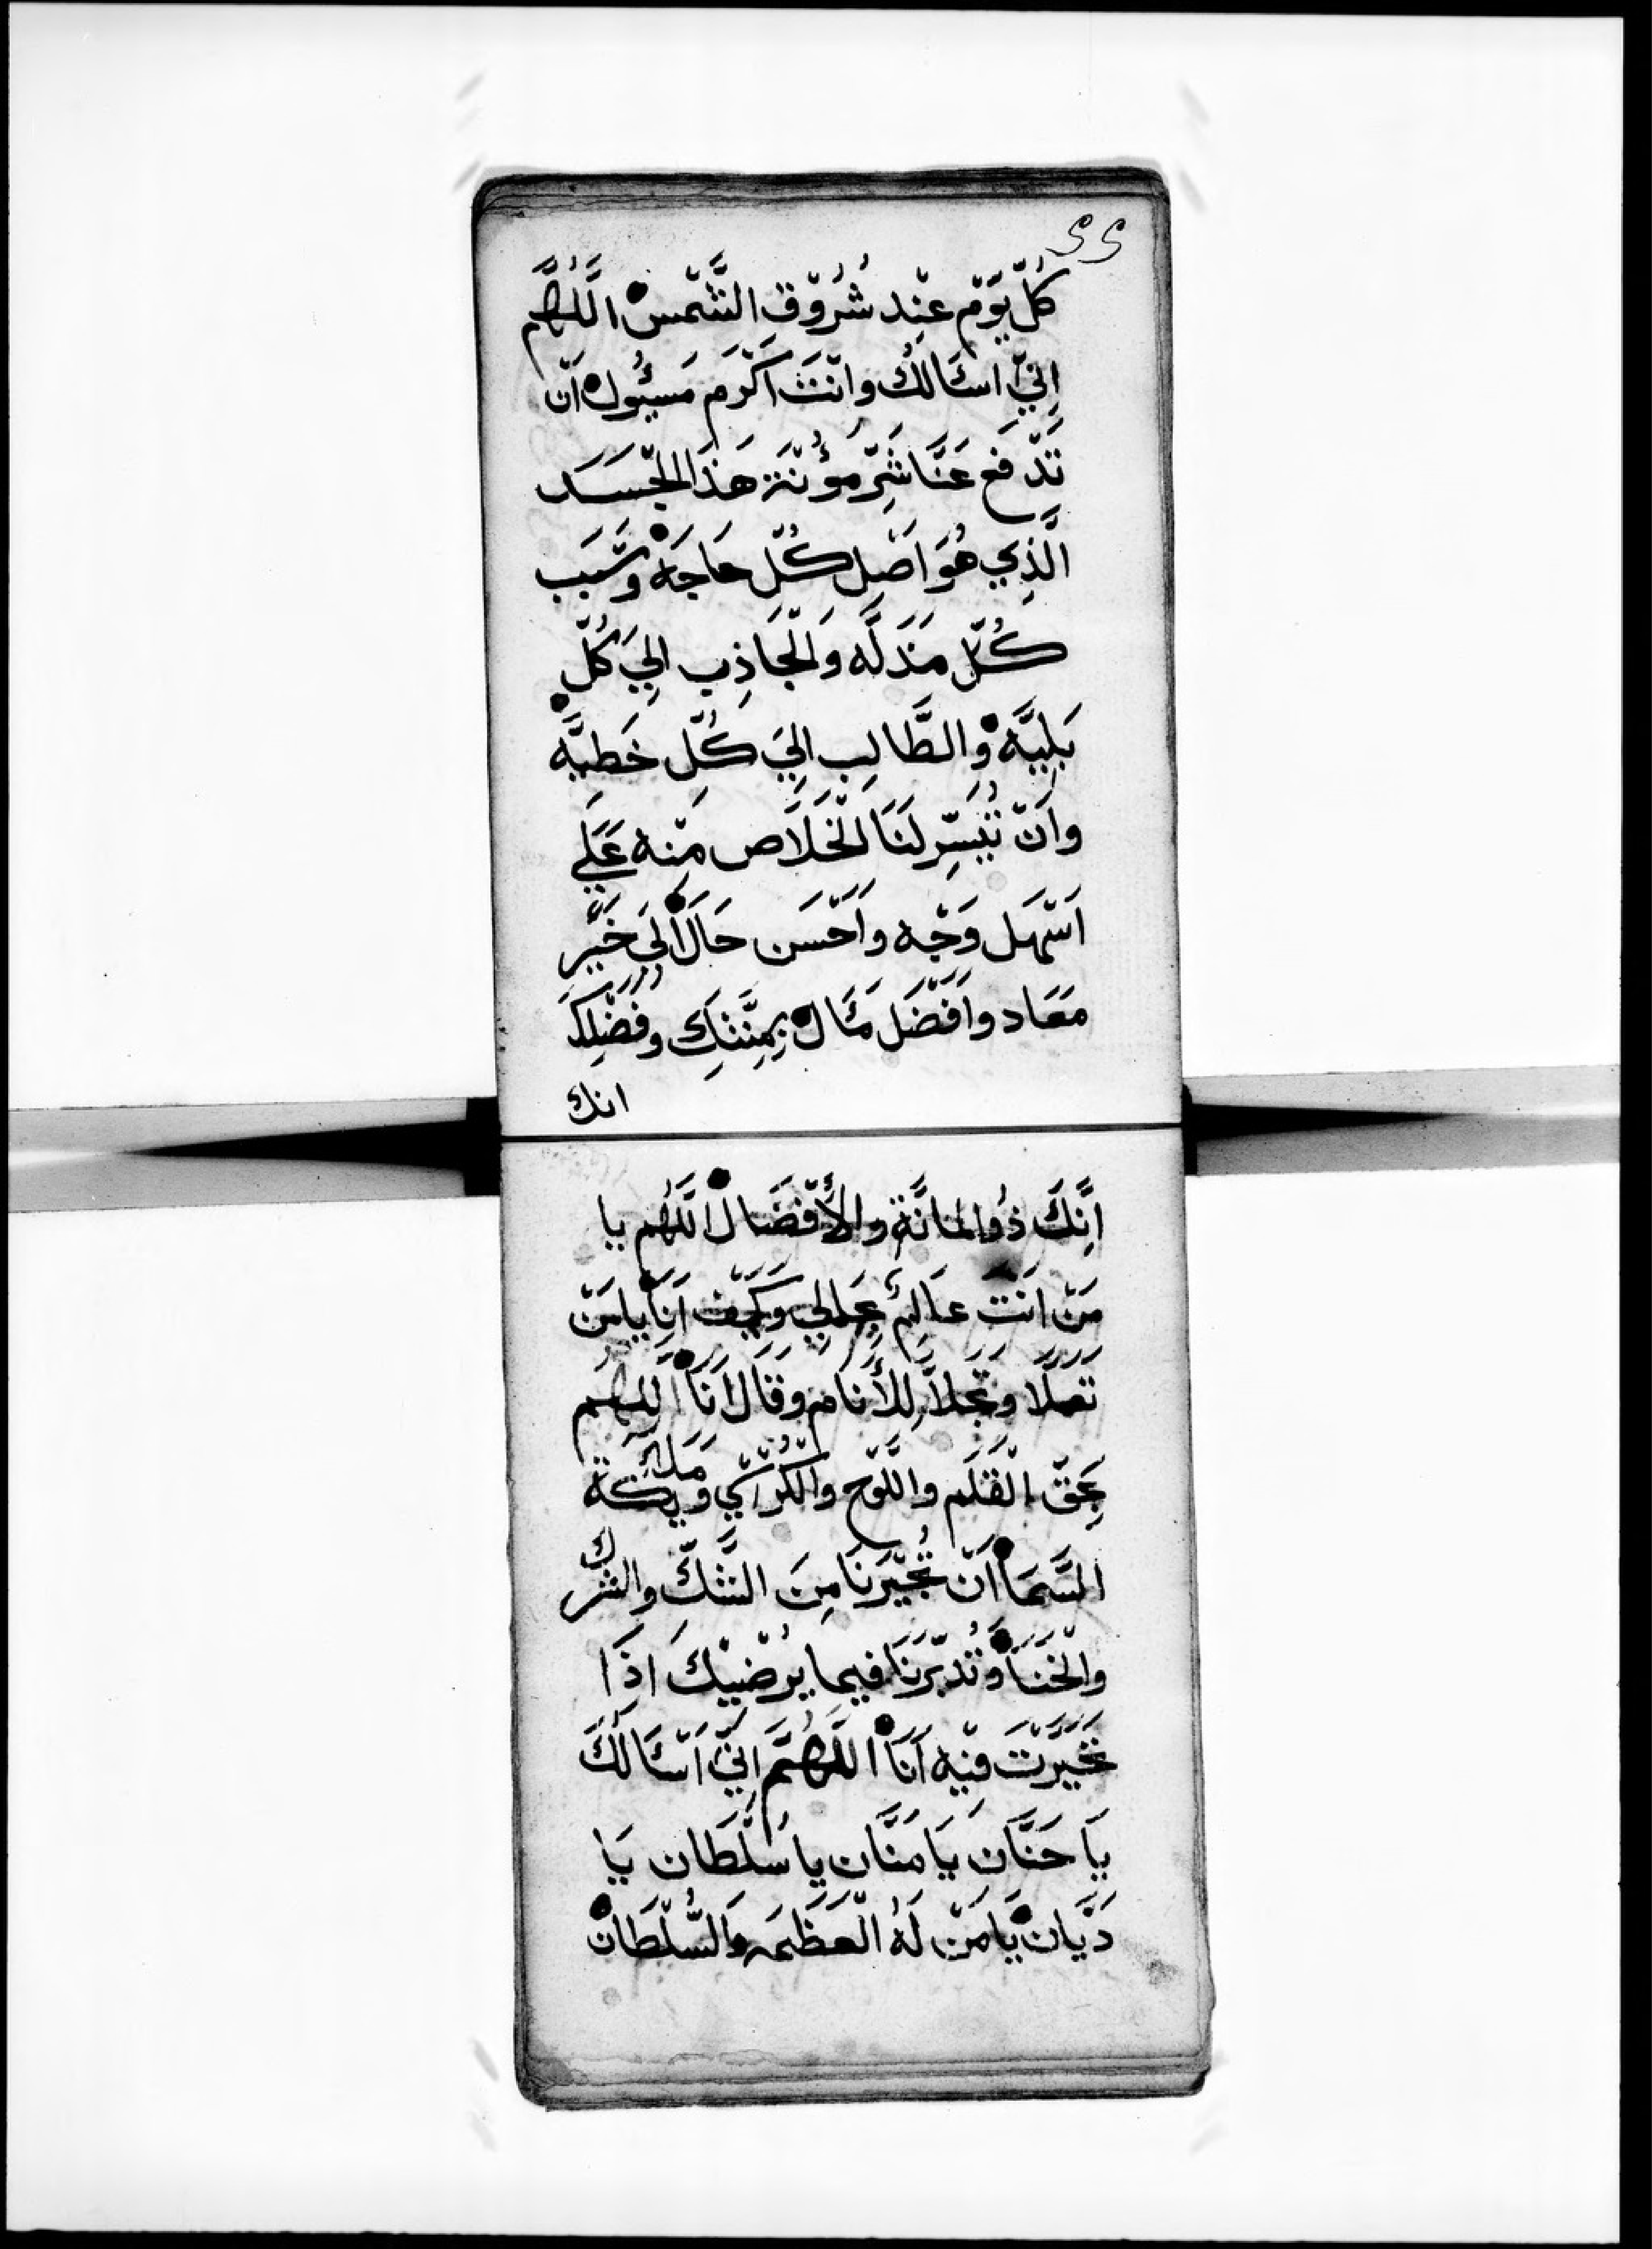 ٢٢
كُلّ يَوْم عِنْد شُرُوْق الشَّمْس اللَّهُمَّ
اِنِّي اسَالكُ وانْتَ اكْرَم مَسيُول اَن
تَدْفَع عَنَّا شِرّ مُؤْنَة هَذَا الجَسَد
الَّذِي هُوَ اَصْل كُلّ حَاجَه وسَّبَب
كُلّ مَذَلَّه وَالْجَاذِب الِيَ كُلّ
بَلِيَّه والطَّالِب اليَ كُلّ خَطِيَّه
واَنْ تُيَسِّر لَنَا الخَلَاص مَنْه عَلَي
اَسْهَل وَجْه واَحْسَن حَال الَي خَيْرِ
مَعَاد واَفْضَل مَآل بِمِنَّتِكَ وفُضْلِكَ
انك
اِنَّكَ ذُوالمانَّةِ والأَفْضَال اللَّهُم يا
مَنْ انْتَ عَالِمُ عِمَلِي وَكَيْف اَنَا يامَنْ
تَعَلَّا وتَجَلاَّ لِلأَنام وقَال اَنَا اللهُم
بِحَقّ الْقَلَم واللَّوْح والكُرْسي ومَلَايِكَة
السَّمَا اَنْ تُجْيِرَنَا مِنَ الشَّكّ والشرك
والْخَنَا وتُدَبّرنَا فيما يُرْضيْكَ اذَا
تَحَيَّرْتَ فيْه اَنَا اللَّهُمَّ اِنّي اَسْاَلكَ
يَا حَنَّان يَا مَنَّان يا سُلْطَان يَا
دَيَّان يَّامَنْ لَهُ الْعَظَمَه وَالسُّلْطَان